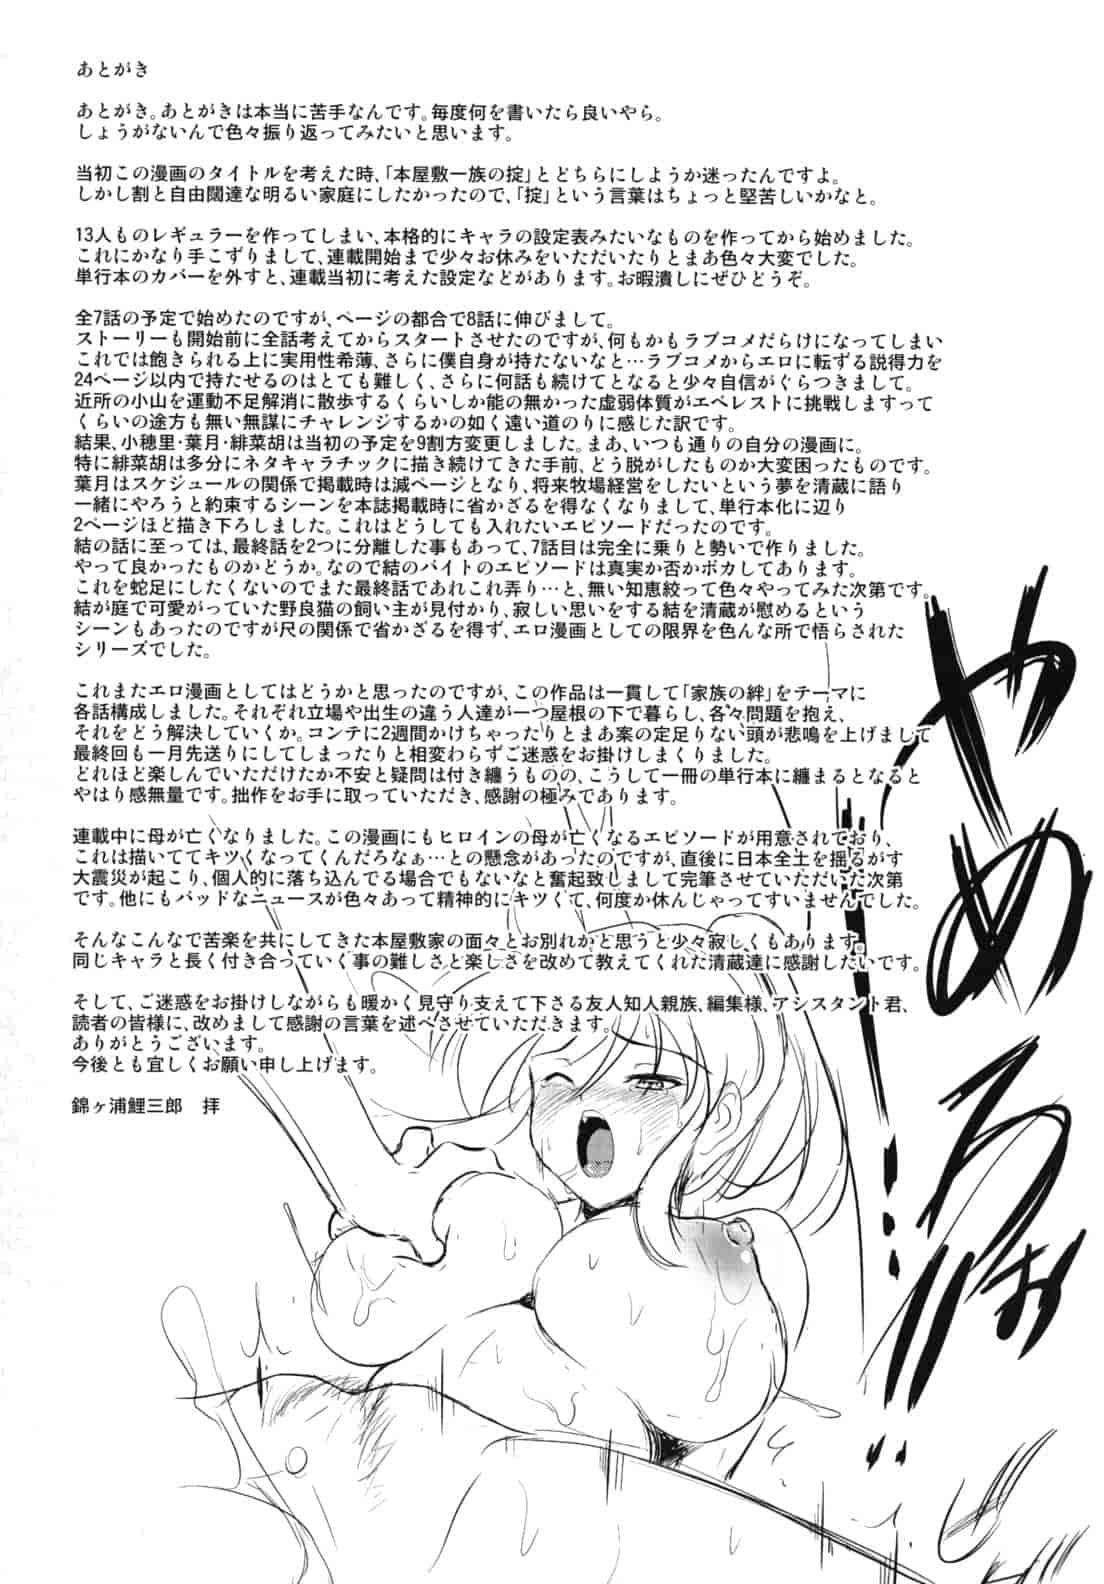 あとがき
あとがき。あとがきは本当に苦手なんです。毎度何を書いたら良いやら。
しょうがないんで色々振り返ってみたいと思います。
当初この漫画のタイトルを考えた時、「本屋敷一族の掟」とどちらにしようか迷ったんですよ。
しかし割と自由闊達な明るい家庭にしたかったので、「掟」という言葉はちょっと堅苦しいかなと。
13人ものレギュラーを作ってしまい、本格的にキャラの設定表みたいなものを作ってから始めました。
これにかなり手こずりまして、連載開始まで少々お休みをいただいたりとまあ色々大変でした。
単行本のカバーを外すと、連載当初に考えた設定などがあります。お暇潰しにぜひどうぞ。
全7話の予定で始めたのですが、ページの都合で8話に伸びまして。
ストーリーも開始前に全話考えてからスタートさせたのですが、何もかもラブコメだらけになってしまい
これでは飽きられる上に実用性希薄、さらに僕自身が持たないなと…ラブコメからエロに転ずる説得力を
24ページ以内で持たせるのはとても難しく、さらに何話も続けてとなると少々自信がぐらつきまして。
近所の小山を運動不足解消に散歩するくらいしか能の無かった虚弱体質がエベレストに挑戦しますって
くらいの途方も無い無謀にチャレンジするかの如く遠い道のりに感じた訳です。
結果、小穂里・葉月・緋菜胡は当初の予定を9割方変更しました。まあ、いつも通りの自分の漫画に。
特に緋菜胡は多分にネタキャラチックに描き続けてきた手前、どう脱がしたものか大変困ったものです。
葉月はスケジュールの関係で掲載時は減ページとなり、将来牧場経営をしたいという夢を清蔵に語り
一緒にやろうと約束するシーンを本誌掲載時に省かざるを得なくなりまして、単行本化に辺り
2ページほど描き下ろしました。これはどうしても入れたいエピソードだったのです。
結の話に至っては、最終話を2つに分離した事もあって、7話目は完全に乗りと勢いで作りました。
やって良かったものかどうか。なので結のバイトのエピソードは真実か否かボカしてあります。
これを蛇足にしたくないのでまた最終話であれこれ弄り…と、無い知恵絞って色々やってみた次第です。
結が庭で可愛がっていた野良猫の飼い主が見付かり、寂しい思いをする結を清蔵が慰めるという
シーンもあったのですが尺の関係で省かざるを得ず、エロ漫画としての限界を色んな所で悟らされた
シリーズでした。
これまたエロ漫画としてはどうかと思ったのですが、この作品は一貫して「家族の絆」をテーマに
各話構成しました。それぞれ立場や出生の違う人達が一つ屋根の下で暮らし、各々問題を抱え、
それをどう解決していくか。コンテに2週間かけちゃったりとまあ案の定足りない頭が悲鳴を上げまして
最終回も一月先送りにしてしまったりと相変わらずご迷惑をお掛けしまくりました。
どれほど楽しんでいただけたか不安と疑問は付き纏うものの、こうして一冊の単行本に纏まるとなると
やはり感無量です。拙作をお手に取っていただき、感謝の極みであります。
連載中に母が亡くなりました。この漫画にもヒロインの母が亡くなるエピソードが用意されており、
これは描いててキツくなってくんだろなぁ…との懸念があったのですが、直後に日本全土を揺るがす
大震災が起こり、個人的に落ち込んでる場合でもないなと奮起致しまして完筆させていただいた次第
です。他にもバッドなニュースが色々あって精神的にキツくて、何度か休んじゃってすいませんでした。
そんなこんなで苦楽を共にしてきた本屋敷家の面々とお別れかと思うと少々寂しくもあります。
同じキャラと長く付き合っていく事の難しさと楽しさを改めて教えてくれた清蔵達に感謝したいです。
そして、ご迷惑をお掛けしながらも暖かく見守り支えて下さる友人知人親族、編集様、アシスタント君、
読者の皆様に、改めまして感謝の言葉を述べさせていただきます。
ありがとうございます。
今後とも宜しくお願い申し上げます。
錦ヶ浦鯉三郎　拝
やめろぉ
!!